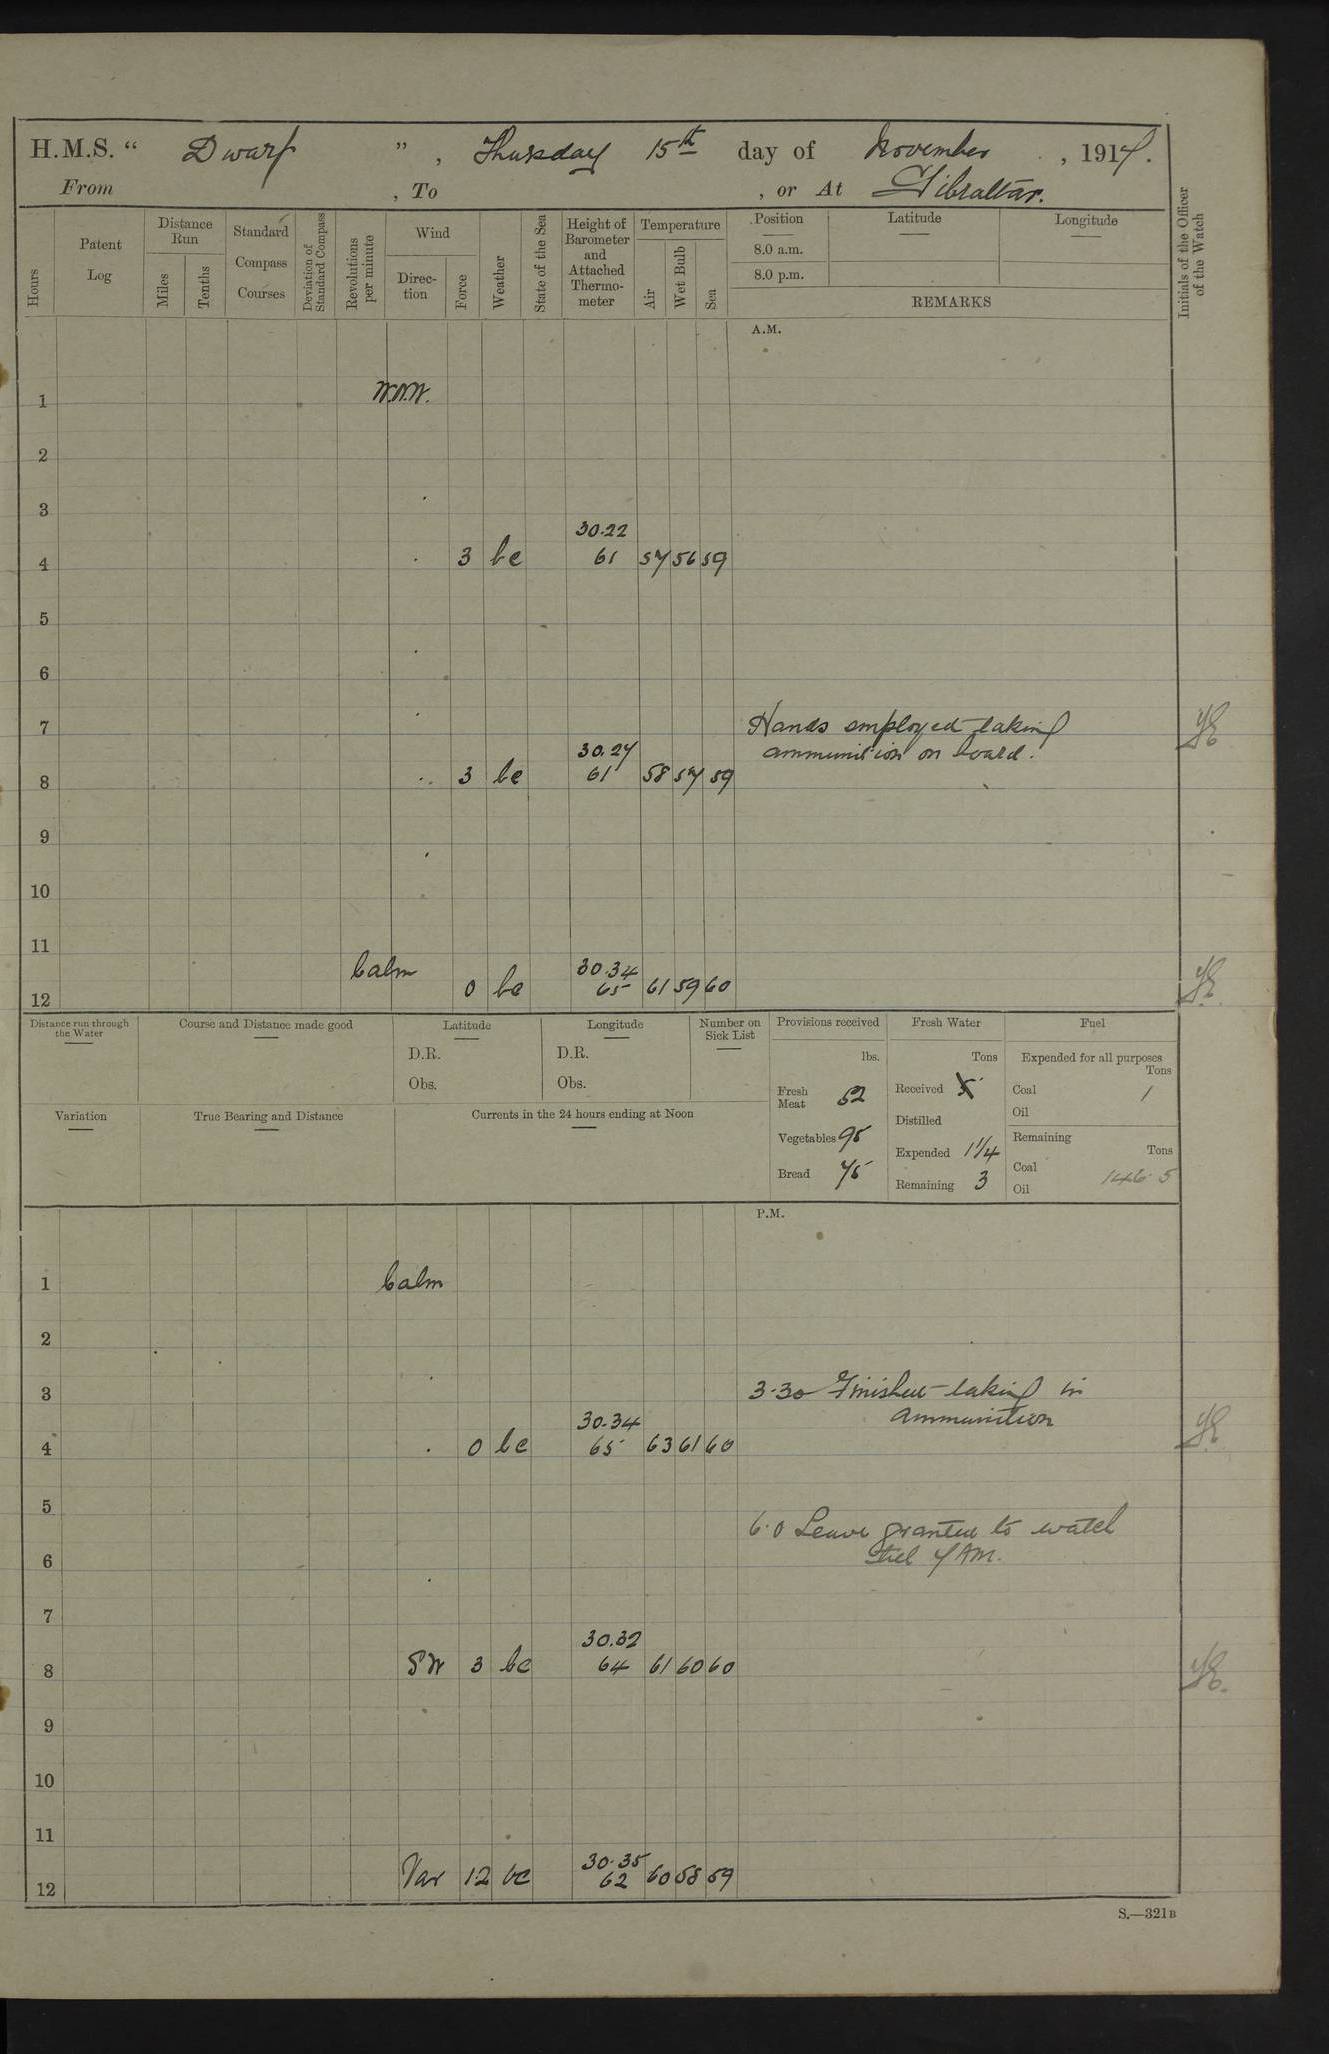 H.M.S. “ Dwarf ” , Thursday 15th day of November , 1917.
From , To , or At Gibraltar.
Hours
Patent Log
Distance Run
Miles
Tenths
Standard Compass Courses
Deviation of Standard Compass
Revolutions per minute
Wind
Direction
Force
Weather
State of the Sea
Height of Barometer and Attached Thermometer
Temperature
Air
Wet Bulb
Sea
Position
Latitude
Longitude
8.0 a.m.
8.0 p.m.
REMARKS
Initials of the Officer of the Watch
A.M.
1 W.N.W.
2
3
30.22
4 3 bc 61 57 56 59
5
6
7 Hands employed taking
30.27 ammunition on board.
8 3 bc 61 58 57 59
9
10
11
Calm 30.34
12 0 bc 65 61 59 60
Distance run through the Water
Course and Distance made good
Latitude
D.R.
Obs.
Longitude
D.R.
Obs.
Number on Sick List
Provisions received
lbs.
Fresh Meat 52
Vegetables 95
Bread 75
Fresh Water
Tons
Received 5
Distilled
Expended 1 1/4
Remaining 3
Fuel
Expended for all purposes
Tons
Coal 1
Oil
Remaining
Tons
Coal 146.5
Oil
Variation
True Bearing and Distance
Currents in the 24 hours ending at Noon
P.M.
1 Calm
2
3 3.30 Finished taking in
30.34 ammunition
4 0 bc 65 63 61 60
5
6.0 Leave granted to watch
6 till 7 AM.
7
30.32
8 SW 3 bc 64 61 60 60
9
10
11
30.35
12 Var 1.2 bc 62 60 58 59
S.—321B